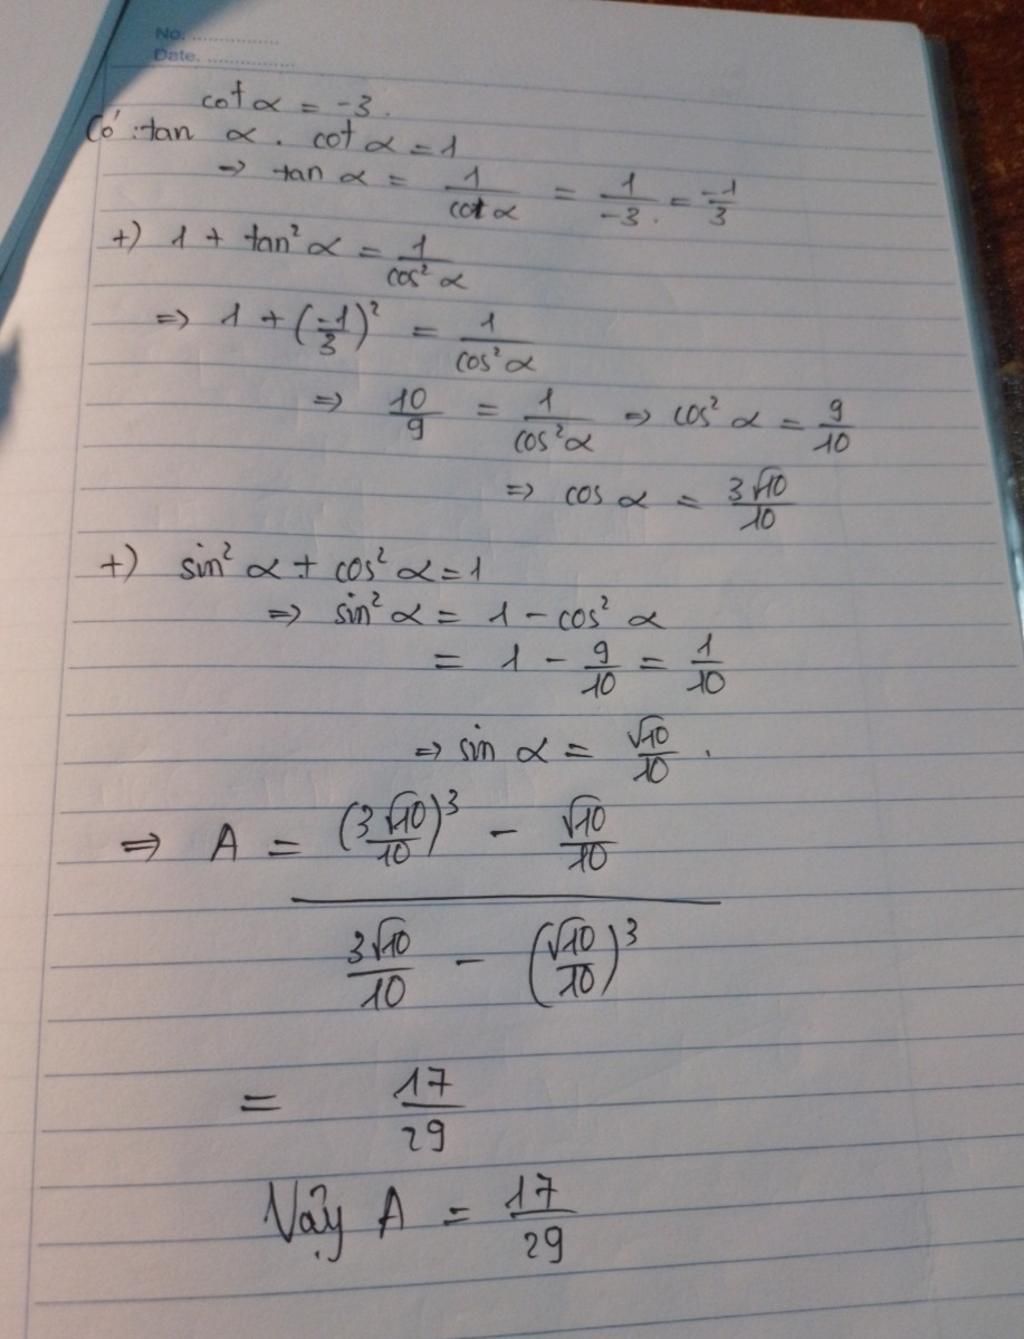 No. ................
Date. ................
cot α = -3.
Có : tan α . cot α = 1
=> tan α = 1/cot α = 1/-3. = -1/3
+) 1 + tan² α = 1/cos² α
=> 1 + (-1/3)² = 1/cos² α
=> 10/9 = 1/cos² α => cos² α = 9/10
=> cos α = 3√10/10
+) sin² α + cos² α = 1
=> sin² α = 1 - cos² α
= 1 - 9/10 = 1/10
=> sin α = √10/10 .
=> A = ((3√10/10)³ - √10/10)/(3√10/10 - (√10/10)³)
= 17/29
Vậy A = 17/29